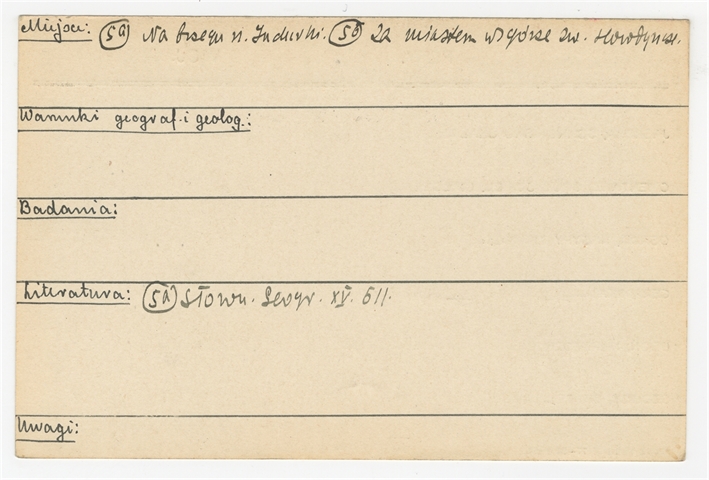 Miejsce: (5a) Na brzegu n. Indurki. (5b) Za miastem wzgórze zw. Horodyszcz.
Warunki geograf. i geolog.:
Badania:
Literatura: (5a) Słown. Geogr. XV. 611.
Uwagi: